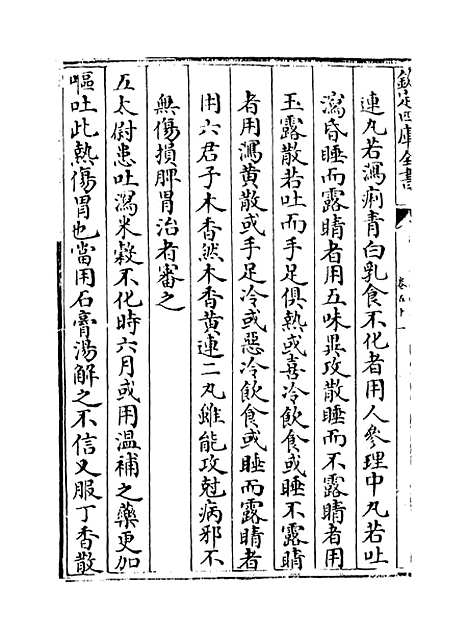 欽定四庫全書
卷五十一
連丸若瀉痢青白乳食不化者用人參理中丸若吐
瀉昏睡而露睛者用五味異攻散睡而不露睛者用
玉露散若吐而手足俱熱或喜冷飲食或睡不露睛
者用瀉黄散或手足冷或惡冷飲食或睡而露睛者
用六君子木香然木香黄連二丸雖能攻尅病邪不
無傷損脾胃治者審之
五太尉患吐瀉米穀不化時六月或用溫補之藥更加
嘔吐此熱傷胃也當用石膏湯解之不信又服丁香散